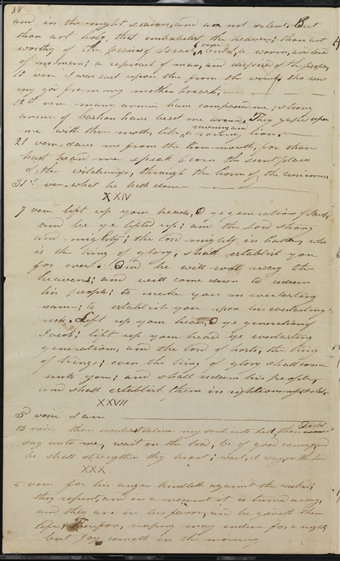 88
am in the night season, and am not silent; But
thou art holy that inhabitest the heavens; thou art
worthy of the praises of Israel; a worm, and
of no man; a reproach of man, and despised of the people
10 vers I was cast upon thee from the womb; thou
my god from my mother breasts
12 vers many armies have compassed me; strong
armies of bashan have beset me around. They gaped upon
me with their mouths, like a ravening and roaring lion
21 vers save me from the lion mouth, for thou
hast heard me speak from the secret places
of the wilderness, through the horns of the unicorns
31st vers what he hath done
XXIV
7 vers lift up your heads, O ye generations of Jacob,
and be ye lifted up; and the Lord strong
and mighty; the lord mighty in battle, who
is the king of glory, shall establish you
for ever. And he will roll away the
heavens; and will come down to redeem
his people; to make you an everlasting
name; to establish you upon his everlasting
rock. Lift up your heads, O ye generations
Jacob; lift up your heads ye everlasting
generations, and the Lord of hosts, the king
of kings; even the king of glory shall come
unto you; and shall redeem his people,
and shall establish them in righteousness
XXVII
vers I am
13 vers then wouldst deliver my soul into hell,
say unto me, wait on the Lord, be of good courage and
he shall strengthen thy heart; wait, I say, on the Lord
XXX
5 vers for his anger kindleth against the wicked;
they repent, and in a moment it is turned away,
and they are in his favor, and he giveth them
life; Therefore, weeping may endure for a night
but Joy cometh in the morning